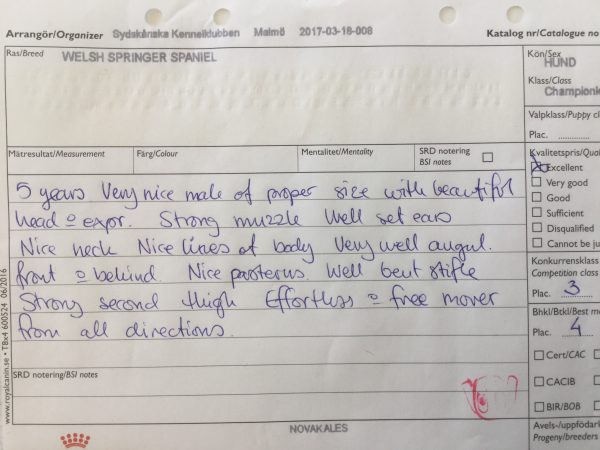 Arrangör/Organizer Sydskånska Kennelklubben Malmö 2017-03-18-008 Katalog nr/Catalogue no
Ras/Breed WELSH SPRINGER SPANIEL
Kön/Sex
HUND
Klass/Class
Championk
Valpklass/Puppy cl
Plac.
Mätresultat/Measurement Färg/Colour Mentalitet/Mentality SRD notering
BSI notes
Kvalitetspris/Qual
Excellent
Very good
Good
Sufficient
Disqualified
Cannot be ju
5 years Very nice male of proper size with beautiful
head o expr. Strong muzzle Well set ears
Nice neck Nice lines of body Very well angul.
front o behind. Nice pasterns Well bent stifle
Strong second thigh Effortless o free mover
from all directions.
Konkurrensklass
Competition class
Plac. 3
Bhkl/Btkl/Best m
Plac. 4
Cert/CAC
CACIB
BIR/BOB
SRD notering/BSI notes
Avels-/uppfödark
Progeny/breeders
NOVAKALES
www.royalcanin.se • TBx4 600524 06/2016